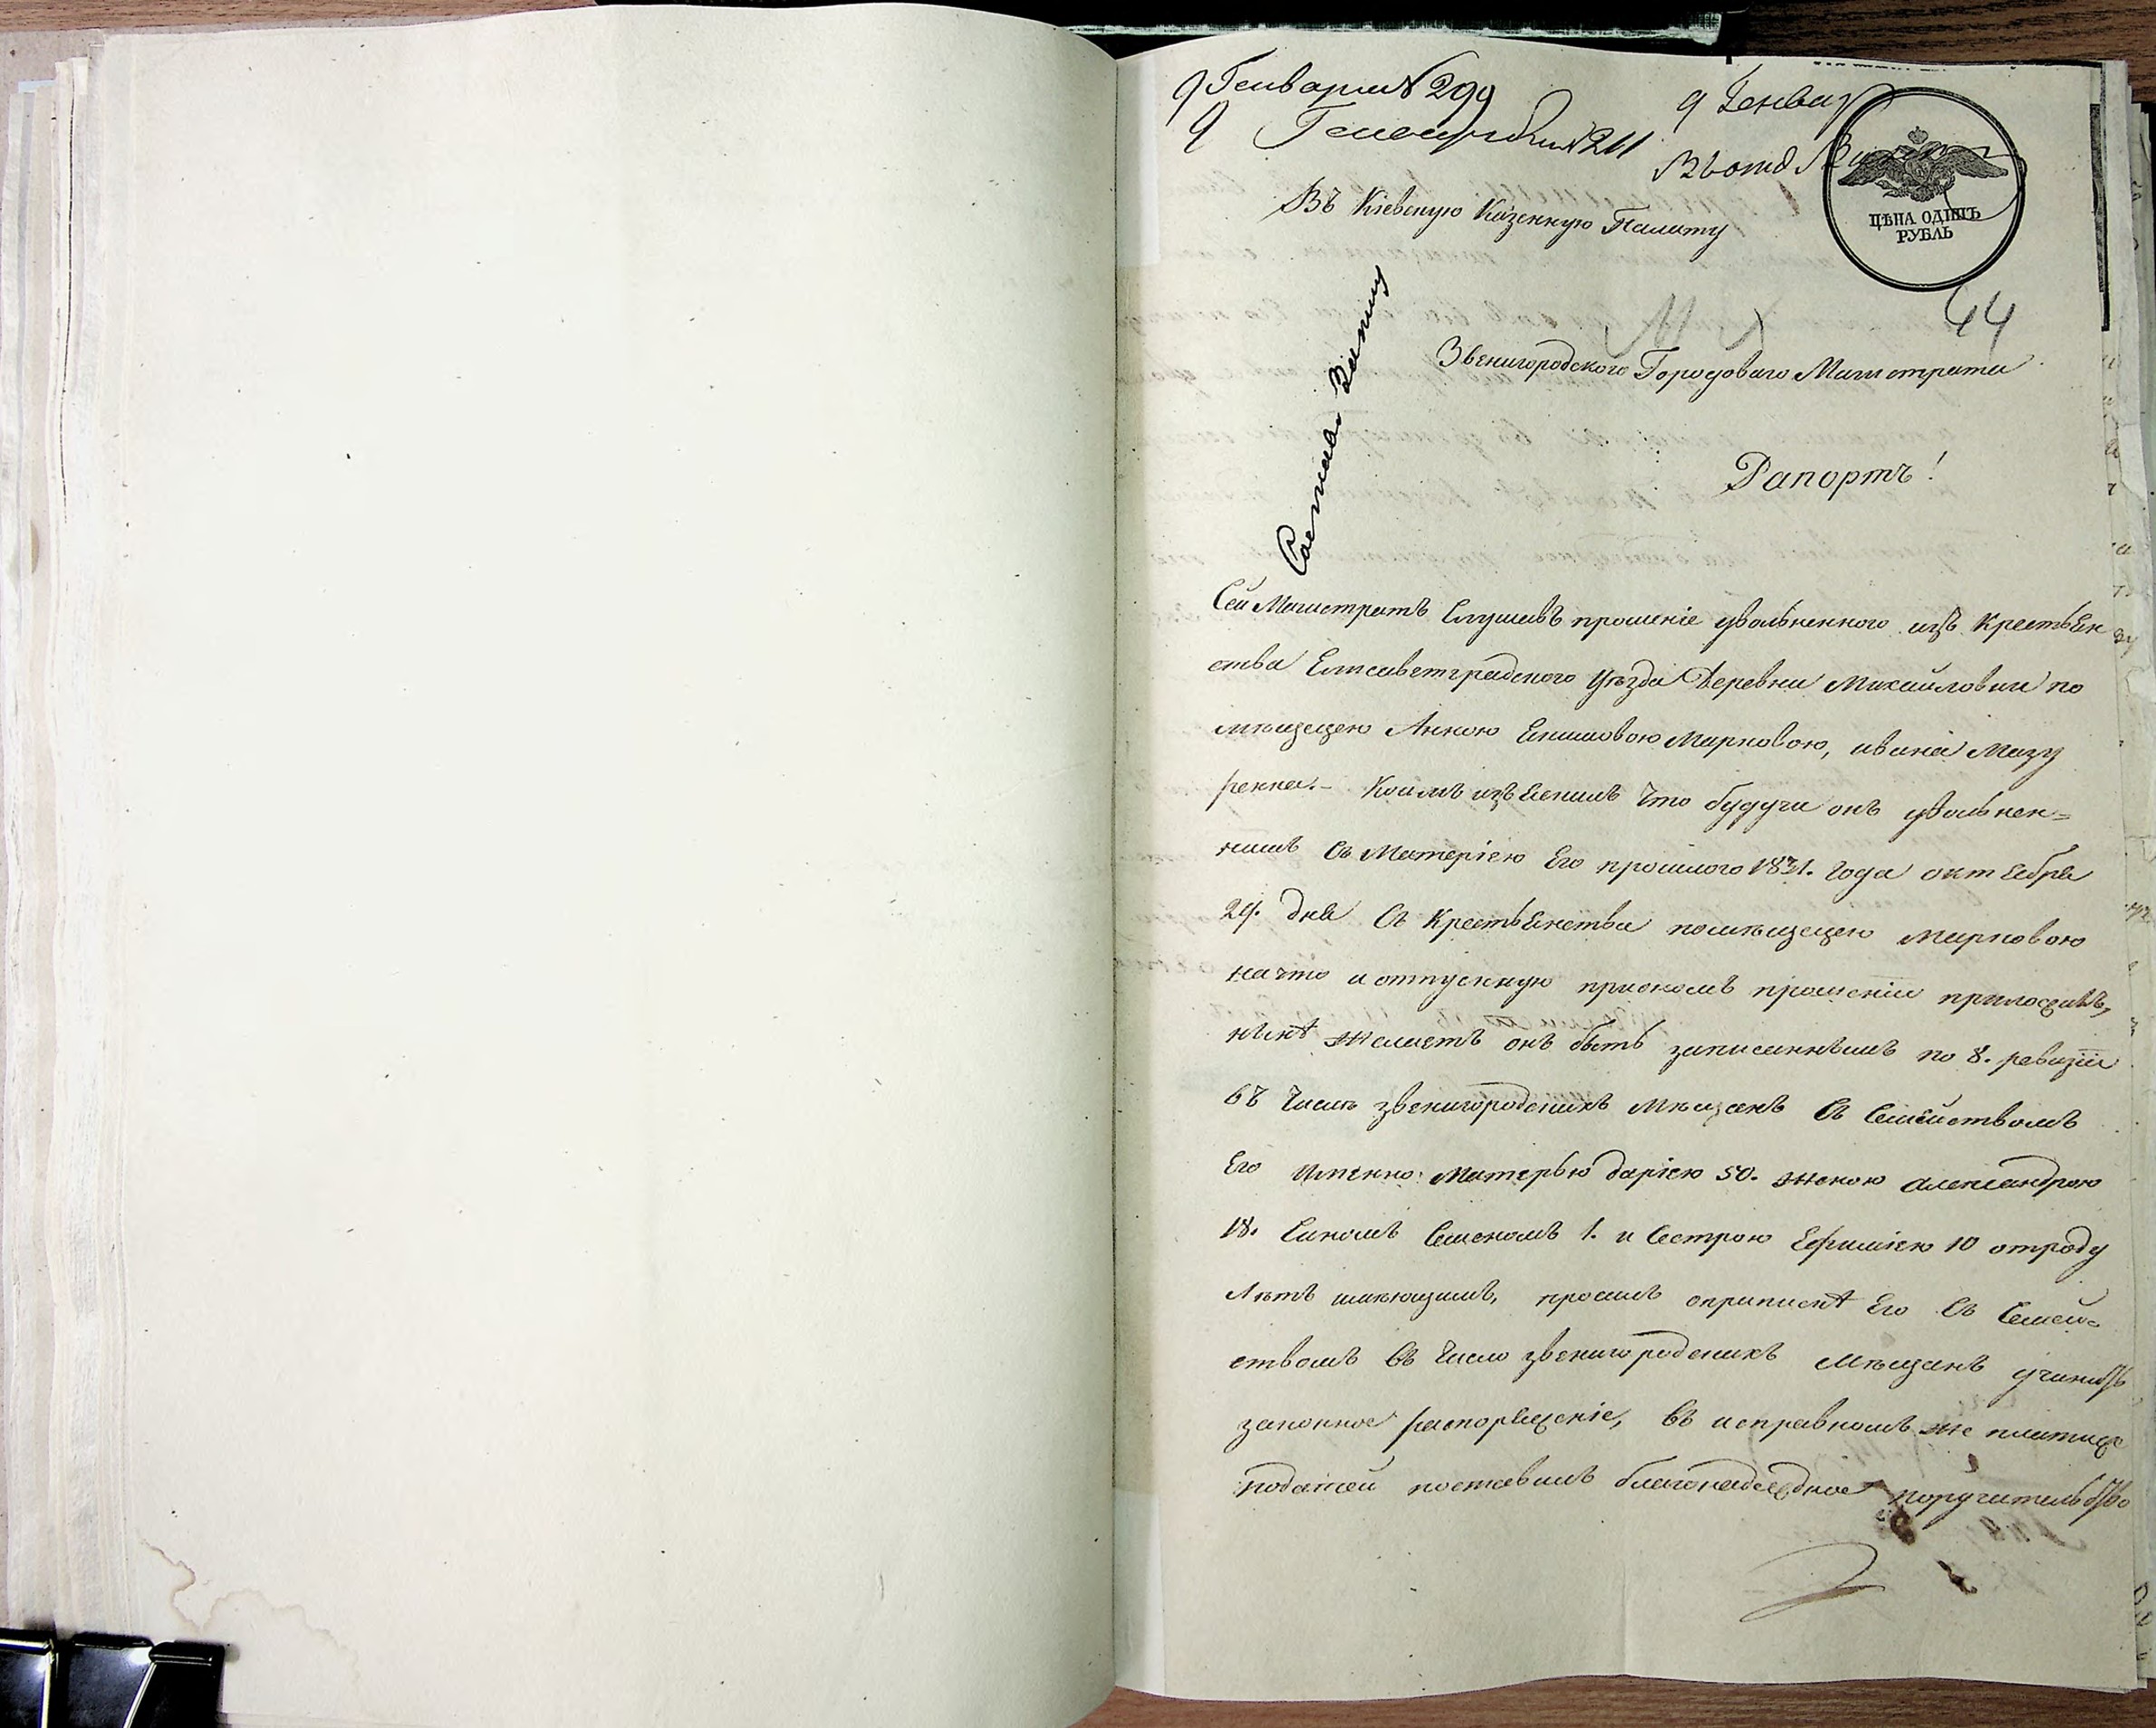 9 Генваря № 299
9 Генваря № 211
9 Генвар
Въ отд
ЦѢНА ОДИНЪ
РУБЛЬ
44
Въ Кіевскую Казенную Палату
Звенигородского Городоваго Магистрата
Рапортъ!
Сей Магистратъ Слушавъ прошеніе увольненного изъ Крестьян
ства Елисаветградского Уѣзда Деревни Михайловки по
мѣщицею Анною Марковою, ивана Мазу
ренка. – Коимъ изъяснилъ что будучи онъ увольнен=
нимъ съ Матерію Его прошлого 1831. года октября
29. дня съ Крестьянства помѣщицею Марковою
на что и отпускную приономъ прошеніи приложилъ,
нынѣ желаетъ онъ быть записаннымъ по 8. ревизіи
въ Число звенигородскихъ мѣщанъ съ Семействомъ
Его Именно: Матерью даріею 50. женою александрою
18. Сыномъ Семеномъ 1. и Сестрою Ефиміею 10 отроду
Лѣтъ имѣющимъ, просилъ оприпискѣ Его съ Семей=
ствомъ въ Число звенигородскихъ мѣщанъ учинить
законное распоряженіе, въ исправномъ же платеже
податей поставилъ благонадеждное поручительство